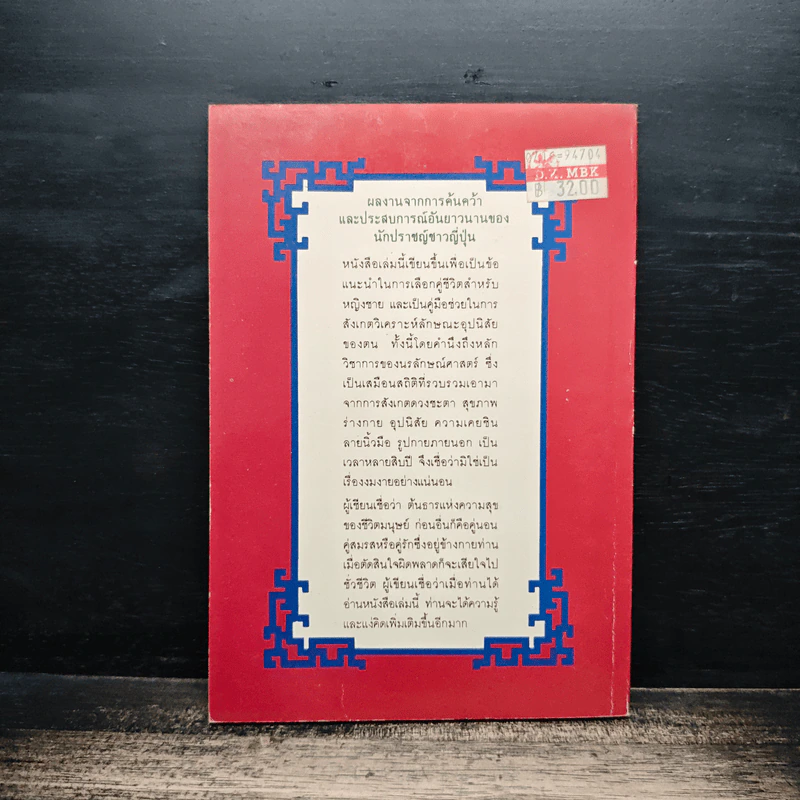 D.K. MBK
฿ 32.00
ผลงานจากการค้นคว้า
และประสบการณ์อันยาวนานของ
นักปราชญ์ชาวญี่ปุ่น
หนังสือเล่มนี้เขียนขึ้นเพื่อเป็นข้อ
แนะนำในการเลือกคู่ชีวิตสำหรับ
หญิงชาย และเป็นคู่มือช่วยในการ
สังเกตวิเคราะห์ลักษณะอุปนิสัย
ของตน ทั้งนี้โดยคำนึงถึงหลัก
วิชาการของนรลักษณ์ศาสตร์ ซึ่ง
เป็นเสมือนสถิติที่รวบรวมเอามา
จากการสังเกตดวงชะตา สุขภาพ
ร่างกาย อุปนิสัย ความเคยชิน
ลายนิ้วมือ รูปกายภายนอก เป็น
เวลาหลายสิบปี จึงเชื่อว่ามิใช่เป็น
เรื่องงมงายอย่างแน่นอน
ผู้เขียนเชื่อว่า ต้นธารแห่งความสุข
ของชีวิตมนุษย์ ก่อนอื่นก็คือคู่นอน
คู่สมรสหรือคู่รักซึ่งอยู่ข้างกายท่าน
เมื่อตัดสินใจผิดพลาดก็จะเสียใจไป
ชั่วชีวิต ผู้เขียนเชื่อว่าเมื่อท่านได้
อ่านหนังสือเล่มนี้ ท่านจะได้ความรู้
และแง่คิดเพิ่มเติมขึ้นอีกมาก